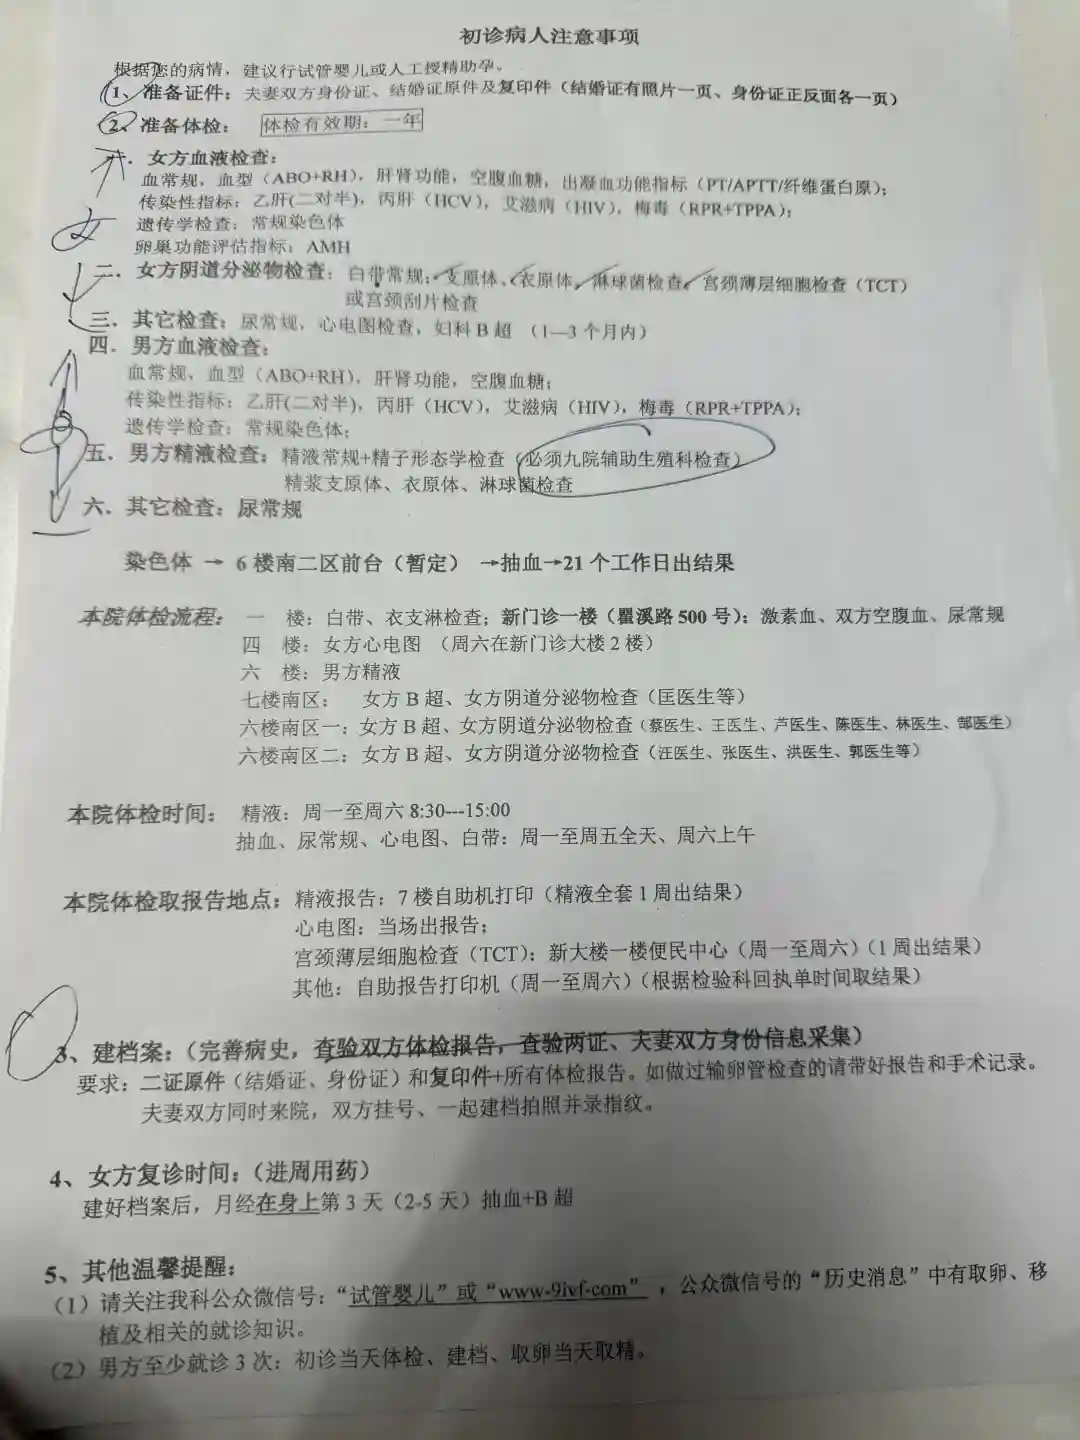 初诊病人注意事项
根据您的病情，建议行试管婴儿或人工授精助孕。
1、准备证件：夫妻双方身份证、结婚证原件及复印件（结婚证有照片一页、身份证正反面各一页）
2、准备体检： 体检有效期：一年
一．女方血液检查：
血常规，血型（ABO+RH），肝肾功能，空腹血糖，出凝血功能指标（PT/APTT/纤维蛋白原）；
传染性指标：乙肝(二对半)，丙肝（HCV），艾滋病（HIV），梅毒（RPR+TPPA）；
遗传学检查：常规染色体
女
卵巢功能评估指标：AMH
二．女方阴道分泌物检查：白带常规；支原体、衣原体、淋球菌检查、宫颈薄层细胞检查（TCT）
或宫颈刮片检查
三．其它检查：尿常规，心电图检查，妇科B超 （1—3个月内）
四．男方血液检查：
血常规，血型（ABO+RH），肝肾功能，空腹血糖；
传染性指标：乙肝(二对半)，丙肝（HCV），艾滋病（HIV），梅毒（RPR+TPPA）；
遗传学检查：常规染色体；
五．男方精液检查：精液常规+精子形态学检查（必须九院辅助生殖科检查）
精浆支原体、衣原体、淋球菌检查
六．其它检查：尿常规
染色体 → 6楼南二区前台（暂定） →抽血→21个工作日出结果
本院体检流程： 一 楼：白带、衣支淋检查；新门诊一楼（瞿溪路500号）：激素血、双方空腹血、尿常规
四 楼：女方心电图 （周六在新门诊大楼2楼）
六 楼：男方精液
七楼南区： 女方B超、女方阴道分泌物检查（匡医生等）
六楼南区一：女方B超、女方阴道分泌物检查（蔡医生、王医生、芦医生、陈医生、林医生、郜医生）
六楼南区二：女方B超、女方阴道分泌物检查（汪医生、张医生、洪医生、郭医生等）
本院体检时间： 精液：周一至周六 8:30---15:00
抽血、尿常规、心电图、白带：周一至周五全天、周六上午
本院体检取报告地点：精液报告：7楼自助机打印（精液全套1周出结果）
心电图：当场出报告；
宫颈薄层细胞检查（TCT）：新大楼一楼便民中心（周一至周六）（1周出结果）
其他：自助报告打印机（周一至周六）（根据检验科回执单时间取结果）
3、建档案：（完善病史，查验双方体检报告，查验两证、夫妻双方身份信息采集）
要求：二证原件（结婚证、身份证）和复印件+所有体检报告。如做过输卵管检查的请带好报告和手术记录。
夫妻双方同时来院，双方挂号、一起建档拍照并录指纹。
4、女方复诊时间：（进周用药）
建好档案后，月经在身上第3天（2-5天）抽血+B超
5、其他温馨提醒：
（1）请关注我科公众微信号：“试管婴儿”或“www-9ivf-com”，公众微信号的“历史消息”中有取卵、移
植及相关的就诊知识。
（2）男方至少就诊3次：初诊当天体检、建档、取卵当天取精。